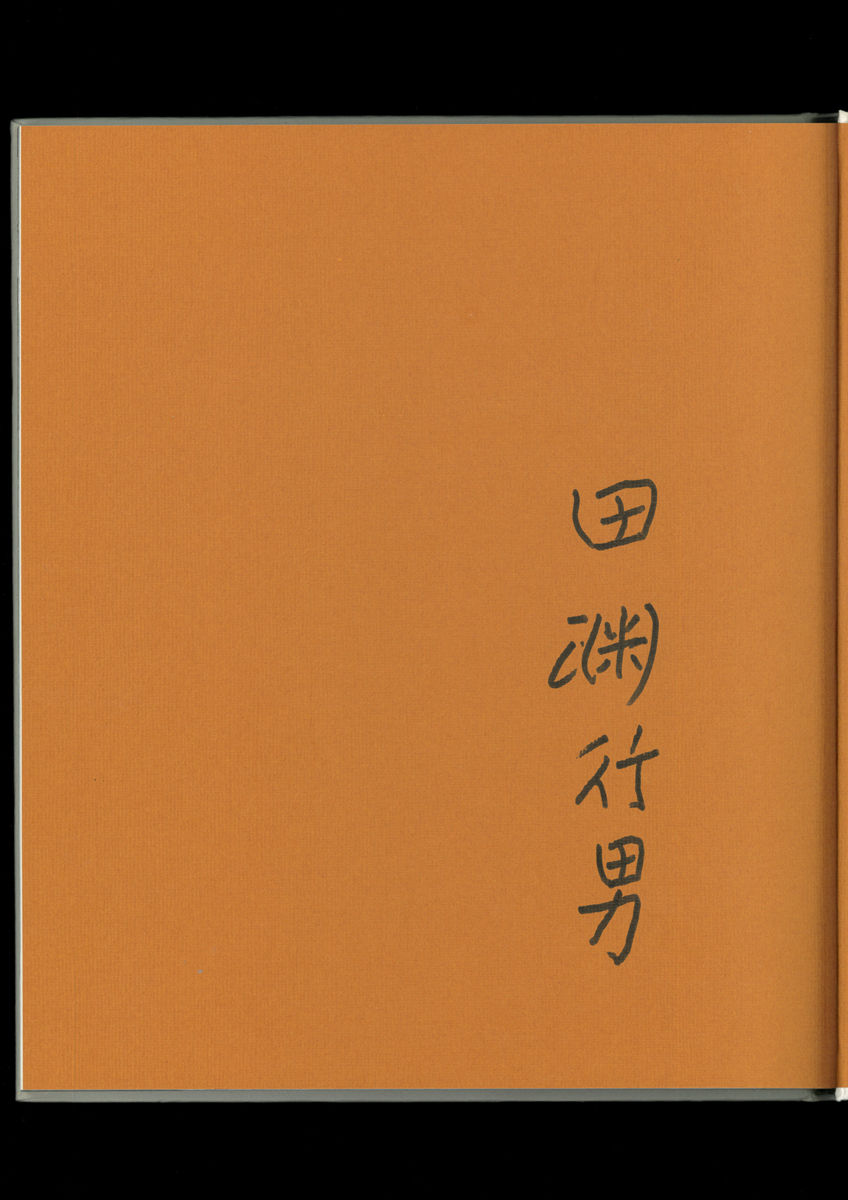 田渕行男